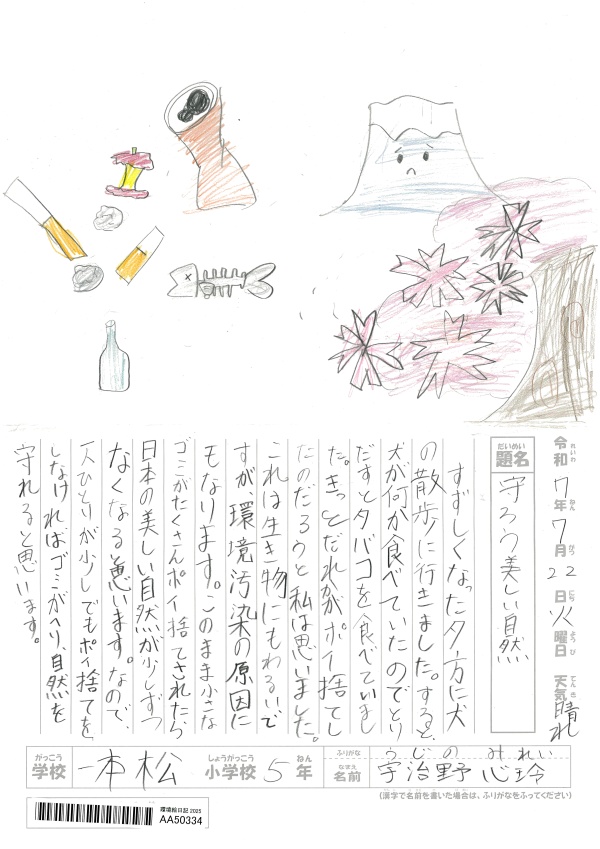 令和7年7月22日火曜日 天気晴れ
れいわ ねん がつ にち ようび てんき
だいめい
題名 守ろう美しい自然
すずしくなった夕方に犬
の散歩に行きました。すると、
犬が何か食べていたのでとり
だすとタバコを食べていまし
た。きっとだれかがポイ捨てし
たのだろうと私は思いました。
これは生き物にもわるいで
すが、環境汚染の原因に
もなります。このまま小さな
ゴミがたくさんポイ捨てされたら
日本の美しい自然が少しずつ
なくなると思います。なので、
一人ひとりが少しでもポイ捨てを
しなければゴミがへり、自然を
守れると思います。
がっこう しょうがっこう ねん
学校 一本松 小学校 5年
ふりがな うじの みれい
なまえ
名前 宇治野 心玲
(漢字で名前を書いた場合は、ふりがなをふってください)
環境絵日記 2025
AA50334